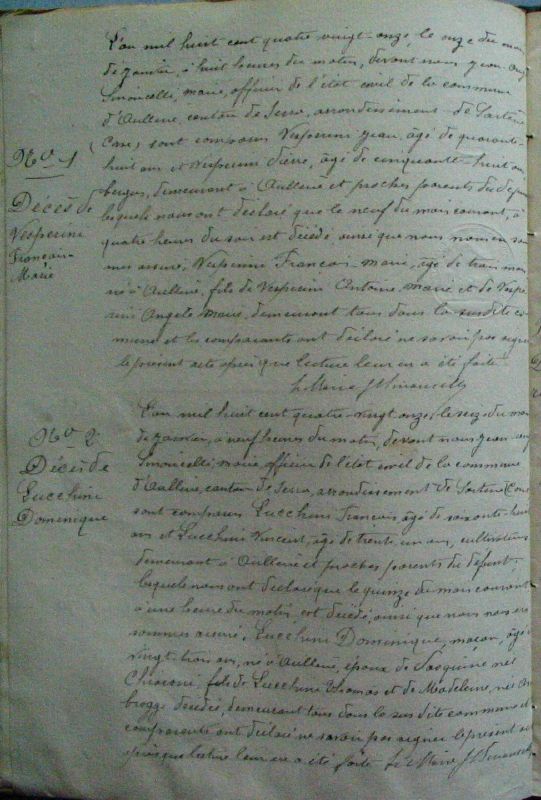 L'an mil huit cent quatre vingt-onze, le onze du mois
de janvier, à huit heures du matin, devant nous Jean
Simoncelli, maire, officier de l'état civil de la commune
d'Aullene, canton de Serra, arrondissement de Sartene
No 1
(Corse) sont comparus Vesperini Jean, âgé de quarante-
huit ans et Vesperini Pierre, âgé de cinquante-huit ans
bergers, demeurant à Aullene et proches parents du
Décès de
Vesperini
François
Marie
lesquels nous ont déclaré que le neuf du mois courant, à
quatre heures du soir est décédé ainsi que nous nous en som
mes assuré, Vesperini François-marie, âgé de trois mois
né à Aullene, fils de Vesperini Antoine-marie et de Vespe
rini Angele marie, demeurant tous dans la susdite com
mune et les comparants ont déclaré ne savoir pas signer
le présent acte après que lecture leur en a été faite
Le Maire
No 2
Décès de
Lucchini
Dominique
L'an mil huit cent quatre-vingt onze, le seize du mois
de janvier, à neuf heures du matin, devant nous Jean
Simoncelli, maire, officier de l'état civil de la commune
d'Aullene, canton de Serra, arrondissement de Sartene (Corse
sont comparus Lucchini François âgé de soixante
ans et Lucchini Vincent, âgé de trente un ans, cultivateurs
demeurant à Aullene et proches parents du défunt,
lesquels nous ont déclaré que le quinze du mois courant
à une heure du matin, est décédé, ainsi que nous nous en
sommes assuré, Lucchini Dominique, maçon, âgé
vingt-trois ans, né à Aullene, époux de née
fils de Lucchini Thomas et de Madeleine, née
décédée, demeurant tous dans la susdite commune et
comparants ont déclaré ne savoir pas signer le présent
après que lecture leur en a été faite Le Maire